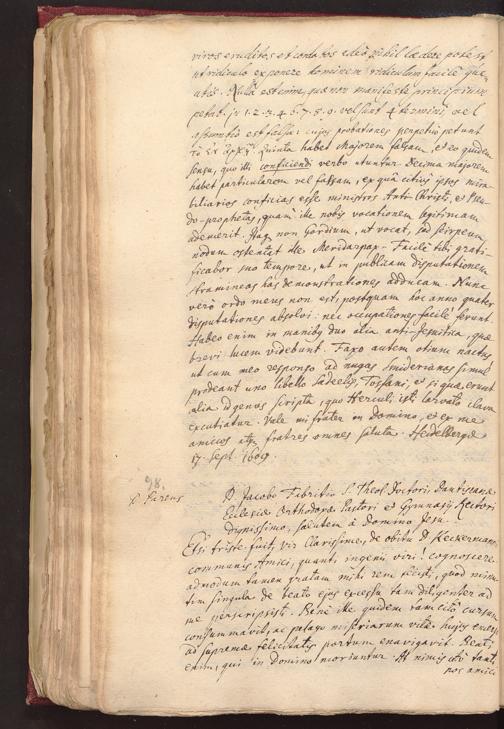 viros eruditos et cordatos adeo nihil laedere potest,
ut ridiculo exponere hominem ridiculum facilè que-
atis. Nulla est enim, quae non manifestè principium
petat. in 1. 2. 3. 4. 5. 7. 8. 9. vel sunt 4 termini, vel
assumtio est falsa: cujus probationes perpetuò petunt
τὸ ἐν ἀρχῇ. Quinta habet Majorem falsam, eo quidem
sensu, quo illi conficiendi verbo utuntur. Decima majorem
habet particularem vel falsam, ex qua citius ipsos
conficias esse ministros Anti-Christi, et Pseu-
do-prophetas, quam ille nobis vocationem legitimam
ademerit. Itaq. non Gordium, ut vocat, sed scirpeum
nodum ostentat ille Facilè tibi grati-
ficabor suo tempore, ut in publicam disputationem
stramineas has demonstrationes adducam. Nunc
verò ordo meus non est, postquam hoc anno quater
disputationes absolvi: nec occupationes facilè ferunt.
Habeo enim in manibus duo alia anti-Jesuitica, quae
brevi lucem videbunt. Faxo autem otium nactus
ut cum meo responso ad nugas Smiderianas simul
prodeant uno libello Sadeelis, Tossani, et si quae erunt
alia id genus scripta, quo Herculi isti larvato clava
excutiatur. Vale mi frater in Domino, et ex me
amicos atq. fratres omnes saluta. Heidelbergae
17 Sept. 1609.
98.
D. Pareus
D. Jacobo Fabritio S. Theol. Doctori, Dantiscanae
Ecclesiae Orthodoxae Pastori et Gymnasii Rectori
dignissimo, salutem à Domino Jesu.
Etsi triste fuit, vir Clarissime, de obitu D. Keckermanni
communis Amici, quanti ingenii viri! cognoscere
admodum tamen gratam mihi rem fecisti, quod
singula de beato ejus excessu tam diligenter ad
me perscripsisti. Bene ille quidem tam citò cursum
consummavit, ac pelago miseriarum vitae hujus
ad supremae felicitatis portum enavigavit. Beati
enim, qui in Domino moriuntur. At nimis citò tanti
nos amici